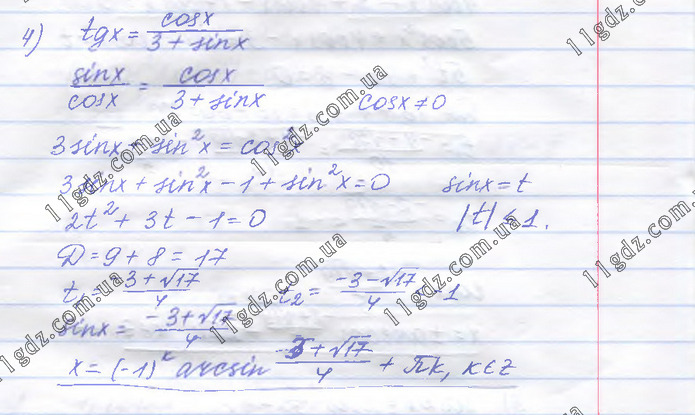 4) tgx = cosx / (3 + sinx)
sinx / cosx = cosx / (3 + sinx)   cosx ≠ 0
3sinx + sin²x = cos²x
3sinx + sin²x - 1 + sin²x = 0   sinx = t
2t² + 3t - 1 = 0   |t| ≤ 1.
D = 9 + 8 = 17
t₁ = (-3 + √17) / 4   t₂ = (-3 - √17) / 4 < -1
sinx = (-3 + √17) / 4
x = (-1)ᵏ arcsin (-3 + √17) / 4 + πk, k ∈ z
11gdz.com.ua
11gdz.com.ua
11gdz.com.ua
11gdz.com.ua
11gdz.com.ua
11gdz.com.ua
11gdz.com.ua
11gdz.com.ua